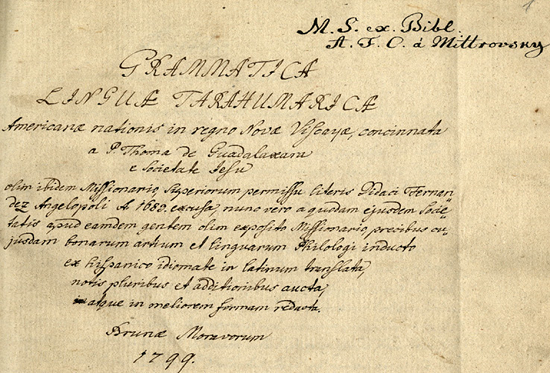 1
M. S. ex Bibl.
A. F. C. á Mittrovsky
GRAMMATICA
LINGUÆ TARAHUMARICÆ
Americanæ nationis in regno Novæ Viscayæ, concinnata
a P. Thoma de Guadalaxara
e Societate Jesu
olim ibidem Missionario Superiorum permissu literis Didaci Fernan„
dez Angelopoli A 1683. excusa, nunc vero a quodam ejusdem Socie„
tatis apud eamdem gentem olim exposito Missionario precibus cu„
jusdam bonarum artium et linguarum Philologi inducto
ex hispanico idiomate in latinum translata,
notis pluribus et additionibus aucta,
atque in meliorem formam redacta.
Brunæ Moravorum
1799.